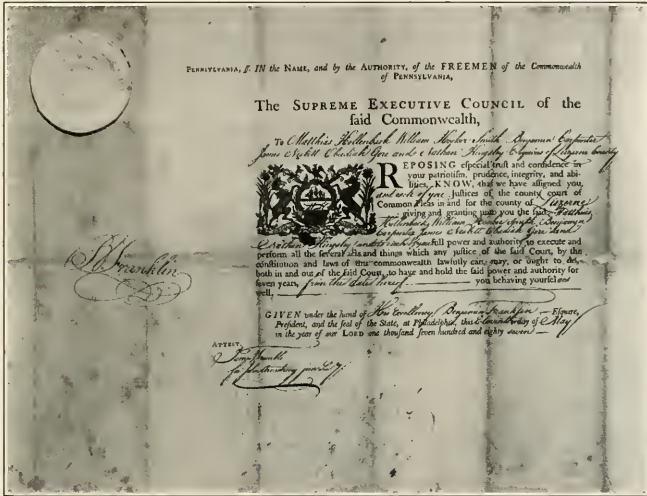 PENNSYLVANIA, ſſ. IN the NAME, and by the AUTHORITY, of the FREEMEN of the Commonwealth
of PENNSYLVANIA,
The SUPREME EXECUTIVE COUNCIL of the
ſaid Commonwealth,
To Matthias Hollenback William Hooker Smith Benjamin Carpenter
James Nesbitt Obediah Gore and Nathan Kingsley Esquires of Luzerne County
REPOSING eſpecial truſt and confidence in
your patriotiſm, prudence, integrity, and abi-
lities, KNOW, that we have aſſigned you,
and each of you Juſtices of the county court of
Common Pleas in and for the county of Luzerne
giving and granting unto you the ſaid Matthias
Hollenback, William Hooker Smith, Benjamin
Carpenter James Nesbitt Obediah Gore and
Nathan Kingsley full power and authority to execute and
perform all the ſeveral acts and things which any juſtice of the ſaid Court, by the
conſtitution and laws of this commonwealth lawfully can, may, or ought to do,
both in and out of the ſaid Court, to have and hold the ſaid power and authority for
ſeven years, from the date hereof you behaving yourſelves
well,
B Franklin
GIVEN under the hand of His Excellency Benjamin Franklin Eſquire,
Preſident, and the ſeal of the State, at Philadelphia, this Eleventh day of May
in the year of our LORD one thouſand ſeven hundred and eighty seven
ATTEST,